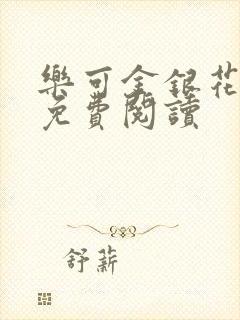 樂可金銀花
免費閱讀
舒薪